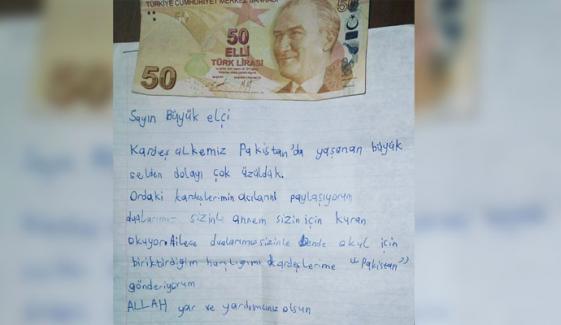 TÜRKİYE CUMHURİYET MERKEZ BANKASI
50
50
ELLİ
TÜRK LİRASI
50
Sayın Büyük elçi
Kardeş ülkemiz Pakistan'da yaşanan büyük
selden dolayı çok üzüldük.
Ordaki kardeşlerimin acılarını paylaşıyorum
dualarımız sizinle annem sizin için kuran
okuyor. Ailece dualarımız sizinle bende okul için
biriktirdiğim harçlığımı kardeşlerime "Pakistan"
gönderiyorum
ALLAH yar ve yardımcınız olsun